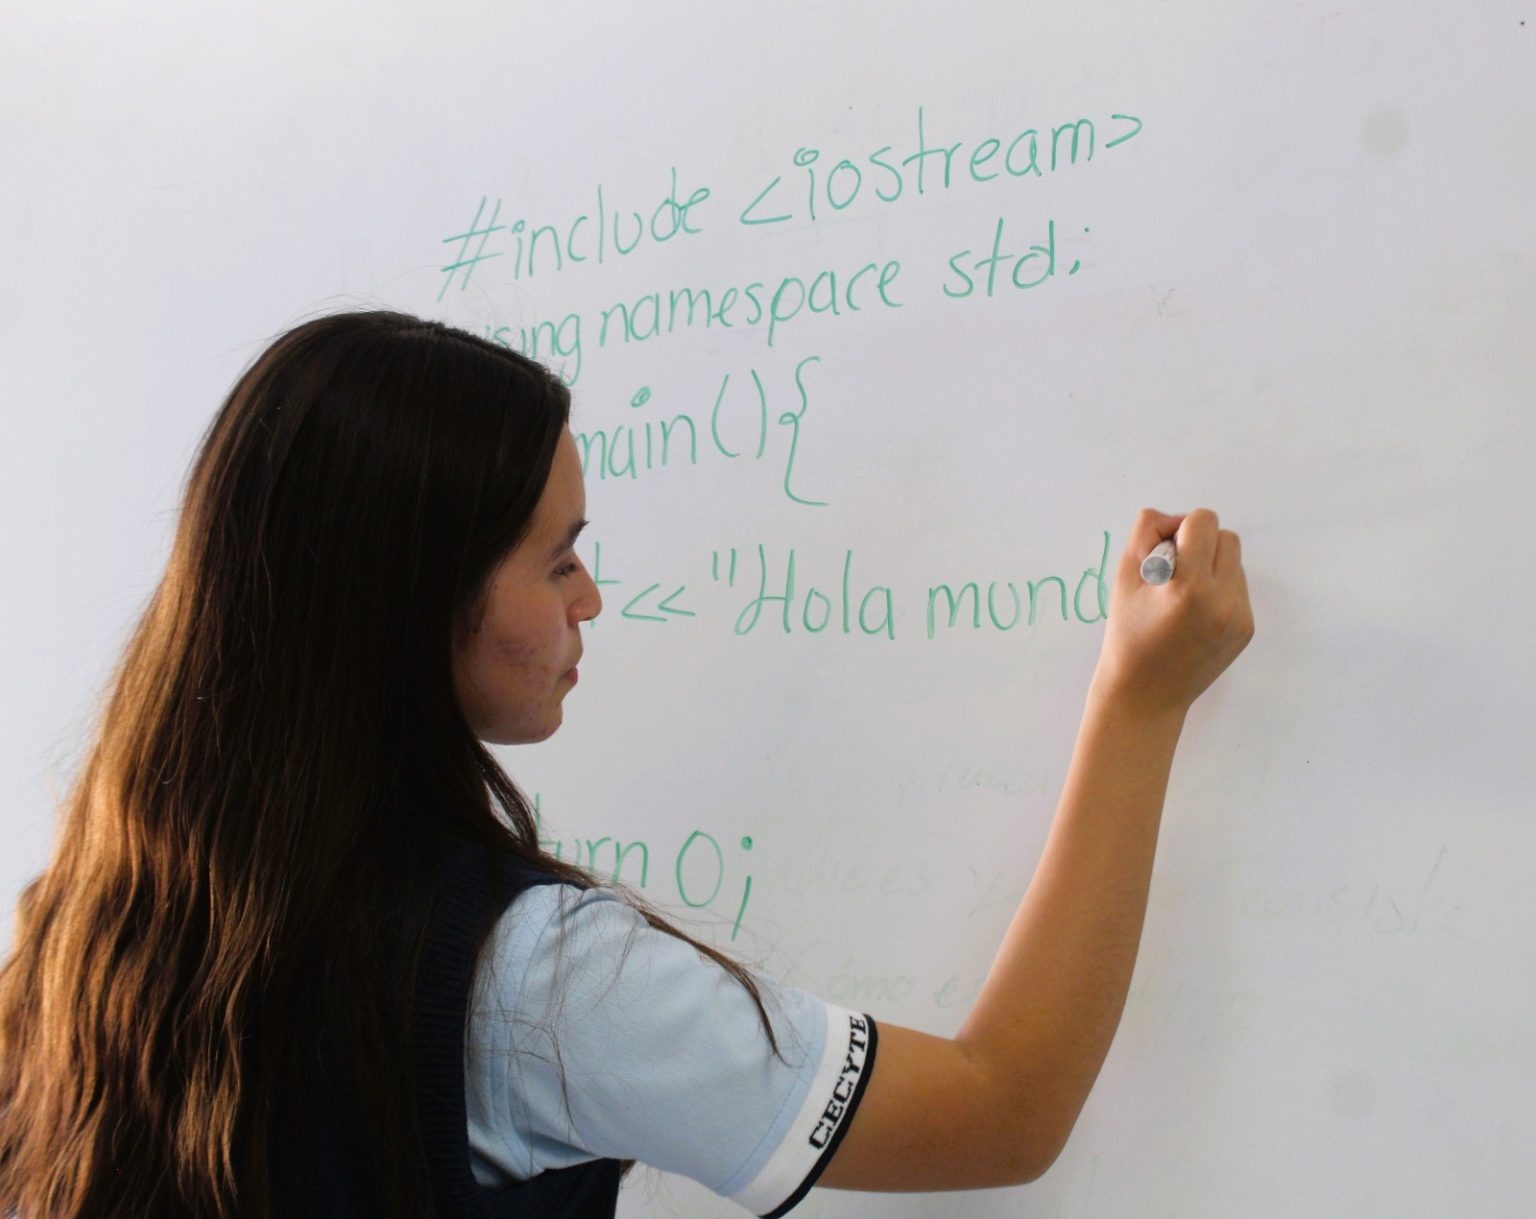 #include <iostream>
using namespace std;
main(){
t<<"Hola mund
turn 0;
CECYTE